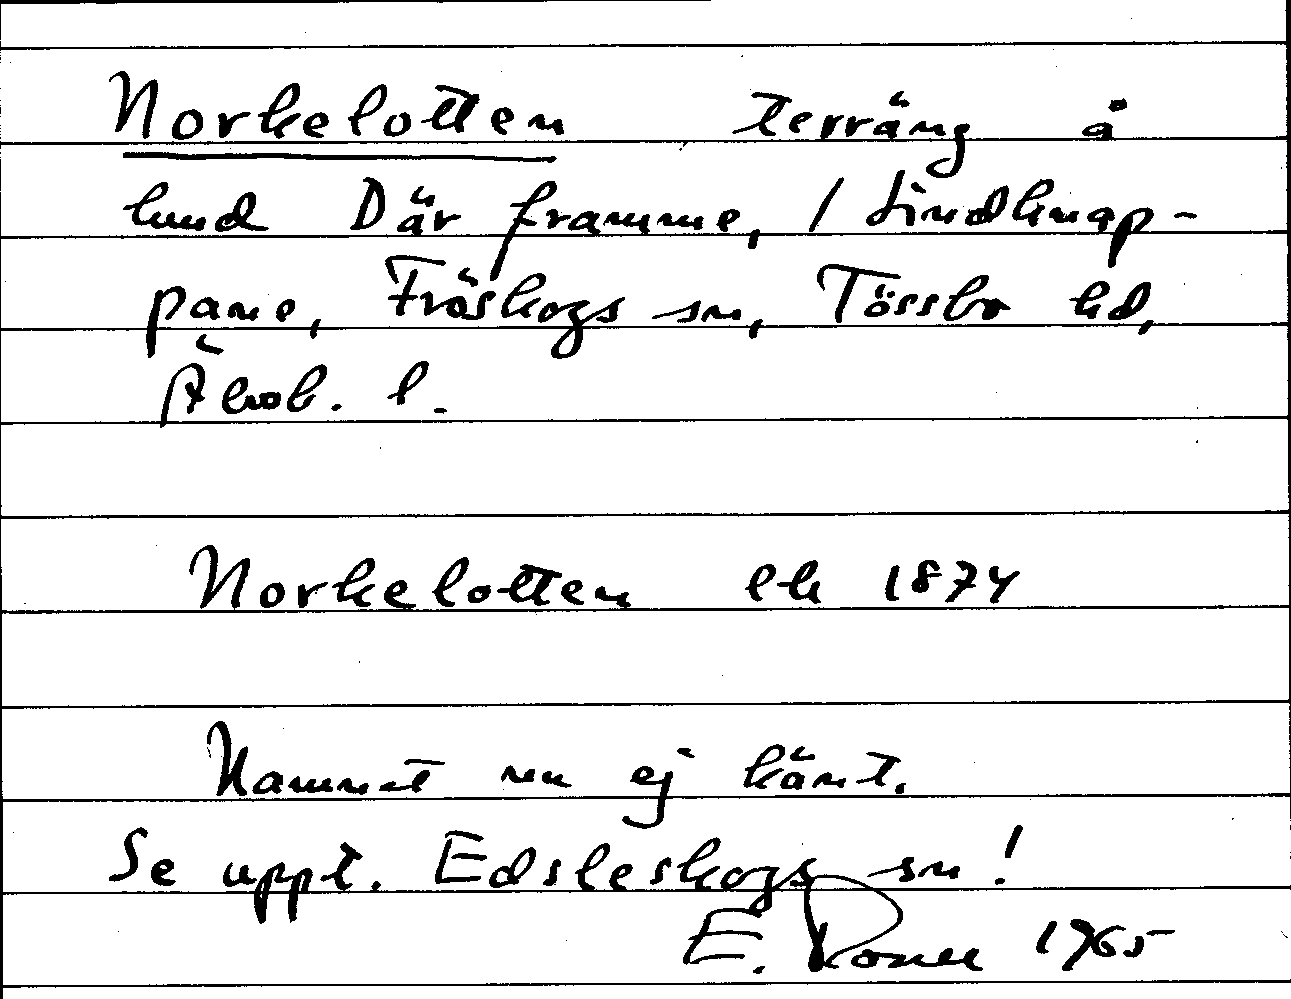 Norkelotten terräng å
lund Där framme, / Lindknap-
parne, Fröskogs sn, Tössbo hd,
Älvsb. l.
Norkelotten ek 1874
Namnet nu ej känt.
Se uppt. Edsleskogs sn!
E. 1965